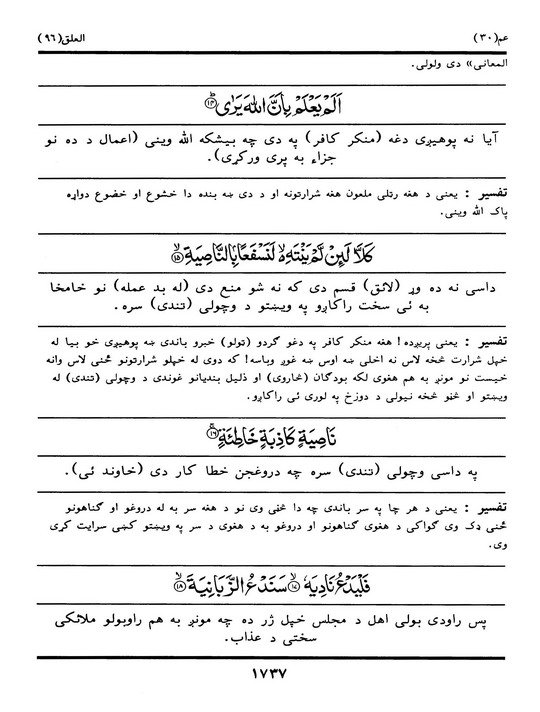 عم (٣٠)
العلق (٩٦)
المعانی» دی ولولی.
اَلَمْ يَعْلَمْ بِاَنَّ اللّٰهَ يَرٰى ۝١٤
آیا نه پوهیږی دغه (منکر کافر) په دی چه بیشکه الله وینی (اعمال د ده نو
جزاء به پری ورکړی).
تفسیر : یعنی د هغه رټلی ملعون هغه شرارتونه او د دی ښه بنده دا خشوع او خضوع دواړه
پاک الله وینی.
كَلَّا لَئِنْ لَّمْ يَنْتَهِ ۙ لَنَسْفَعًۢا بِالنَّاصِيَةِ ۝١٥
داسی نه ده وړ (لائق) قسم دی که نه شو منع دی (له بد عمله) نو خامخا
به ئی سخت راکاږو په ویښتو د وچولی (تندی) سره.
تفسیر : یعنی پریږده! هغه منکر کافر په دغو ګردو (ټولو) خبرو باندی ښه پوهیږی خو بیا له
خپل شرارت څخه لاس نه اخلی ښه اوس ښه غوږ وباسه! که دوی له خپلو شرارتونو ځنی لاس وانه
خیست نو مونږ به هم هغوی لکه بودګان (څاروی) او ذلیل بندیانو غوندی د وچولی (تندی) له
ویښتو او څڼو څخه نیولی د دوزخ په لوری ئی راکاږو.
نَاصِيَةٍ كَاذِبَةٍ خَاطِئَةٍ ۝١٦
په داسی وچولی (تندی) سره چه دروغجن خطا کار دی (خاوند ئی).
تفسیر : یعنی د هر چا په سر باندی چه دا څڼی وی نو د هغه سر به له دروغو او ګناهونو
ځنی ډک وی ګواکی د هغوی ګناهونو او دروغو به د هغوی د سر په ویښتو کښی سرایت کړی
وی.
فَلْيَدْعُ نَادِيَهٗ ۝١٧ سَنَدْعُ الزَّبَانِيَةَ ۝١٨
پس راودی بولی اهل د مجلس خپل ژر ده چه مونږ به هم راوبولو ملائکی
سختی د عذاب.
١٧٣٧